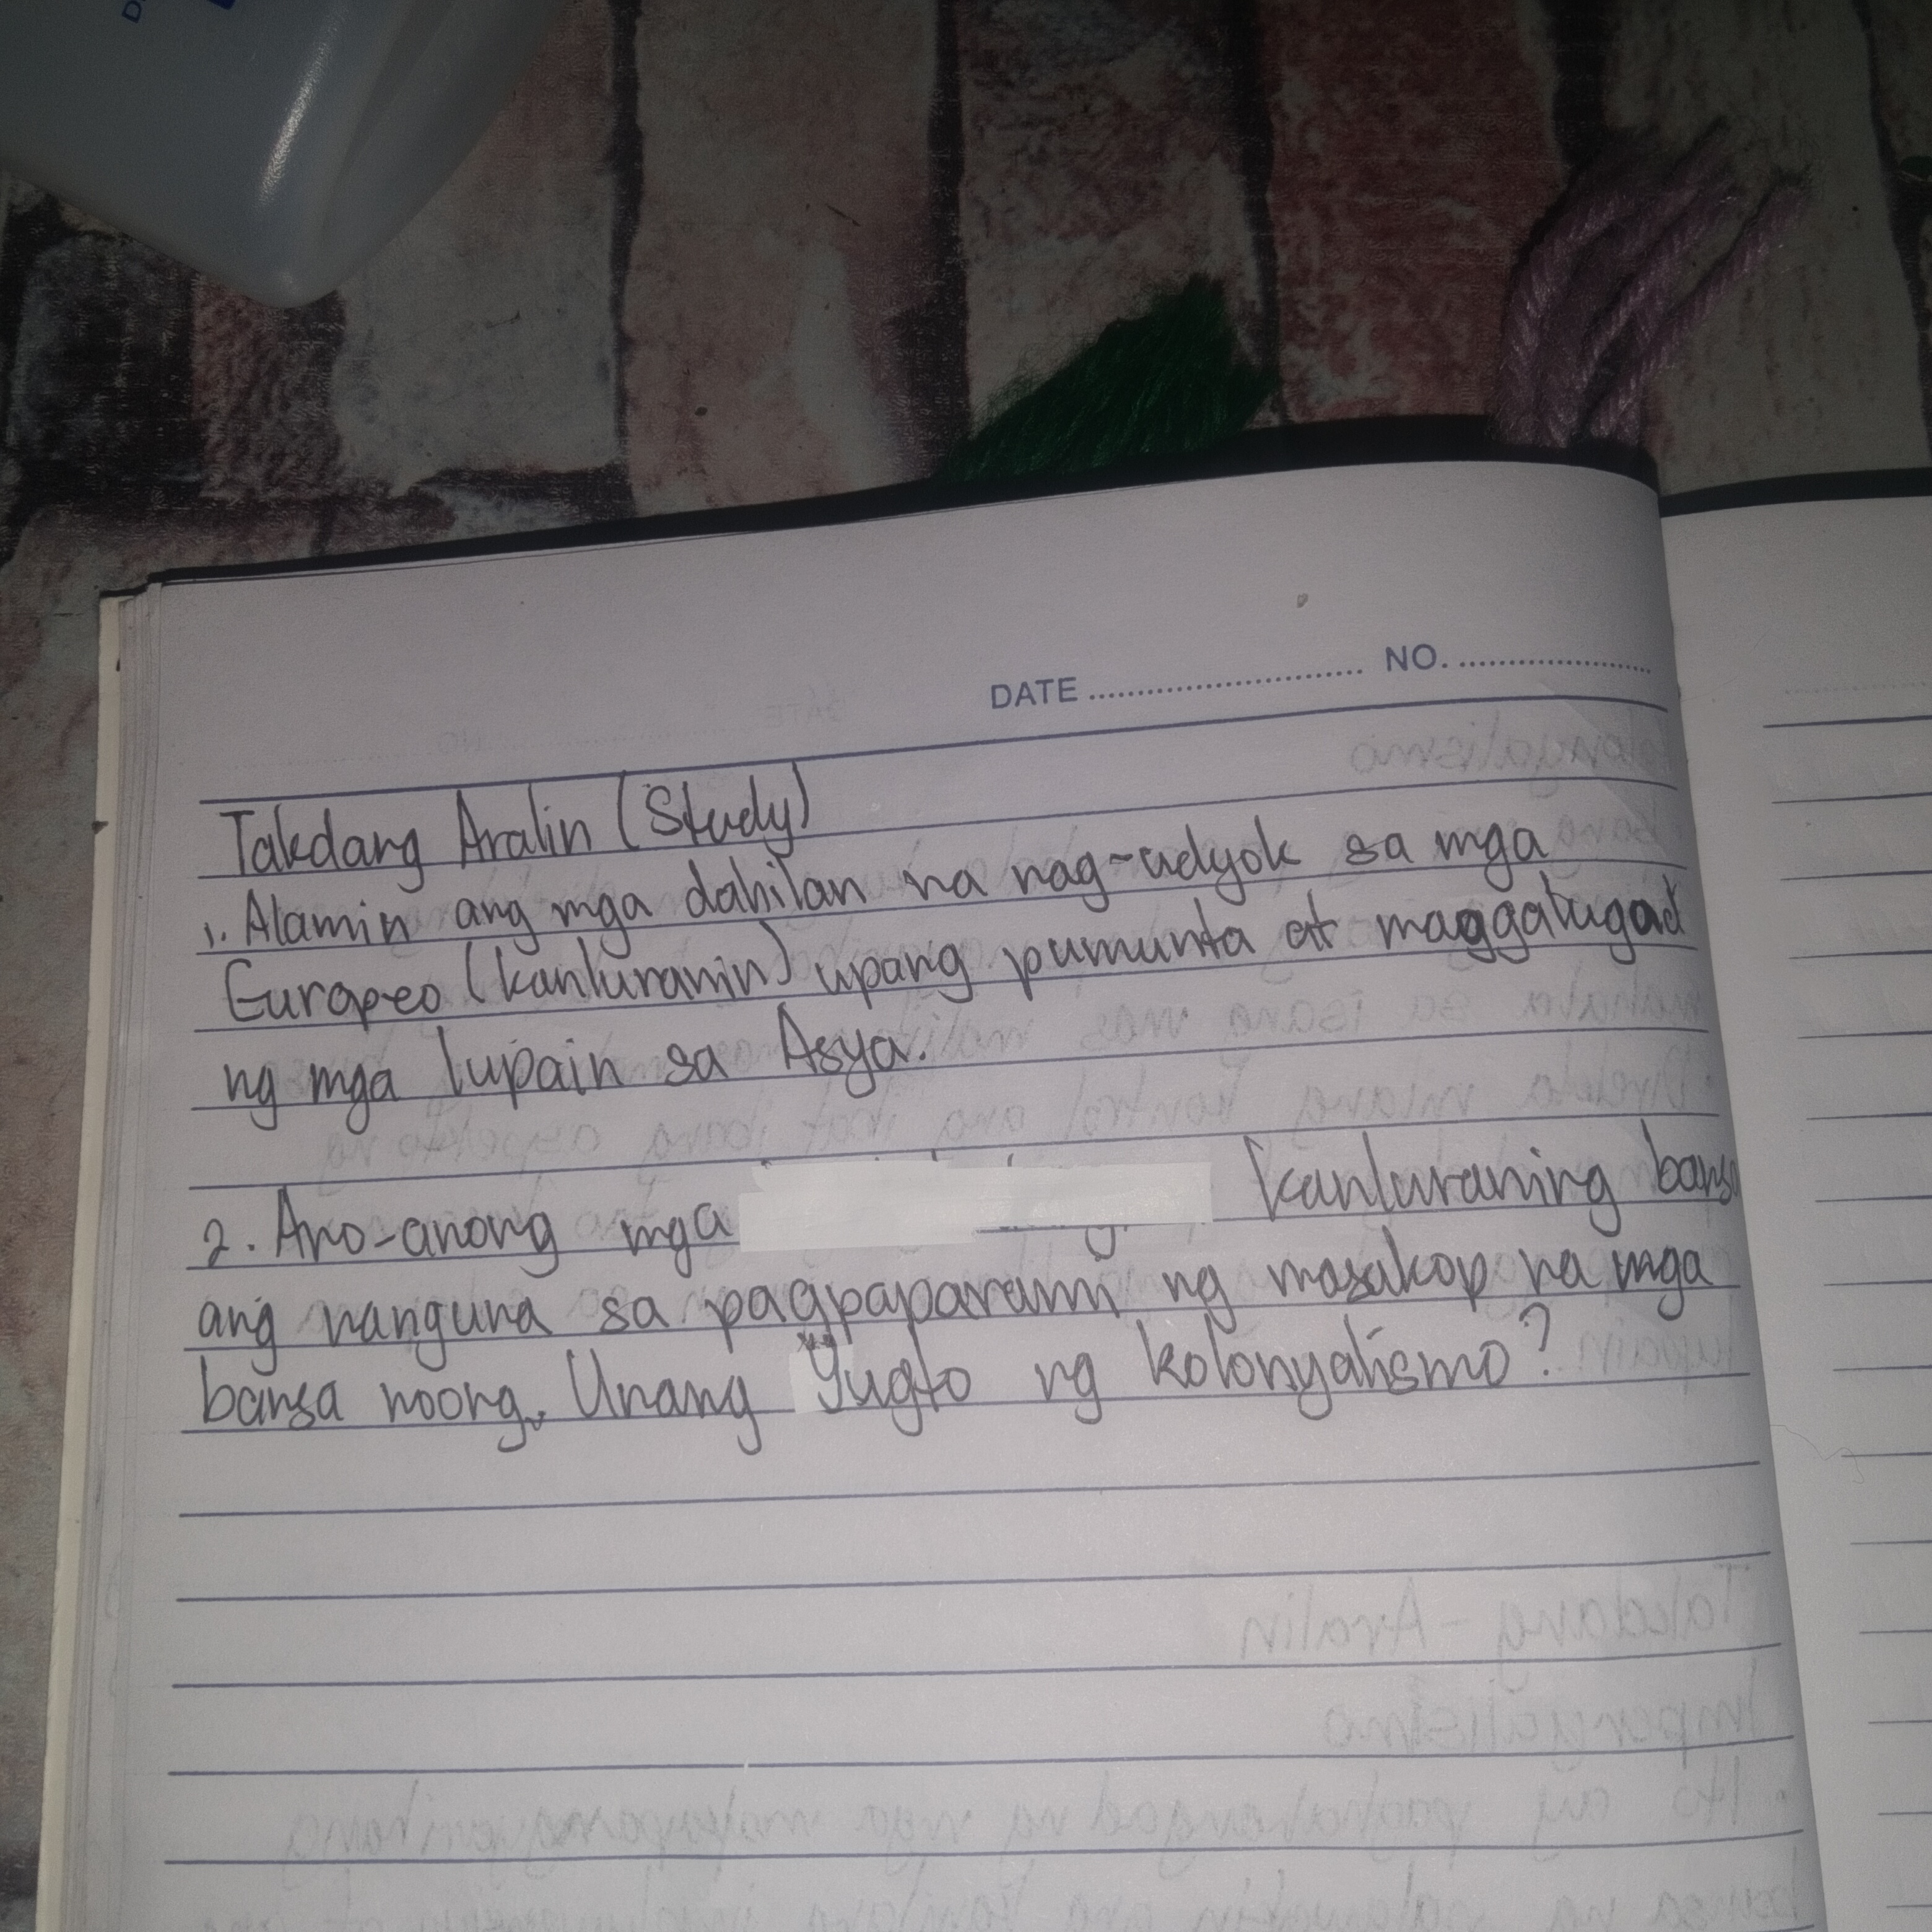 DATE ........................ NO. ..................
Takdang Aralin (Study)
1. Alamin ang mga dahilan na nag-udyok sa mga
Europeo (kanluranin) upang pumunta at maggalugad
ng mga lupain sa Asya.
2. Ano-anong mga kanluraning bansa
ang nanguna sa pagpaparami ng masakop na mga
bansa noong Unang Yugto ng kolonyalismo?